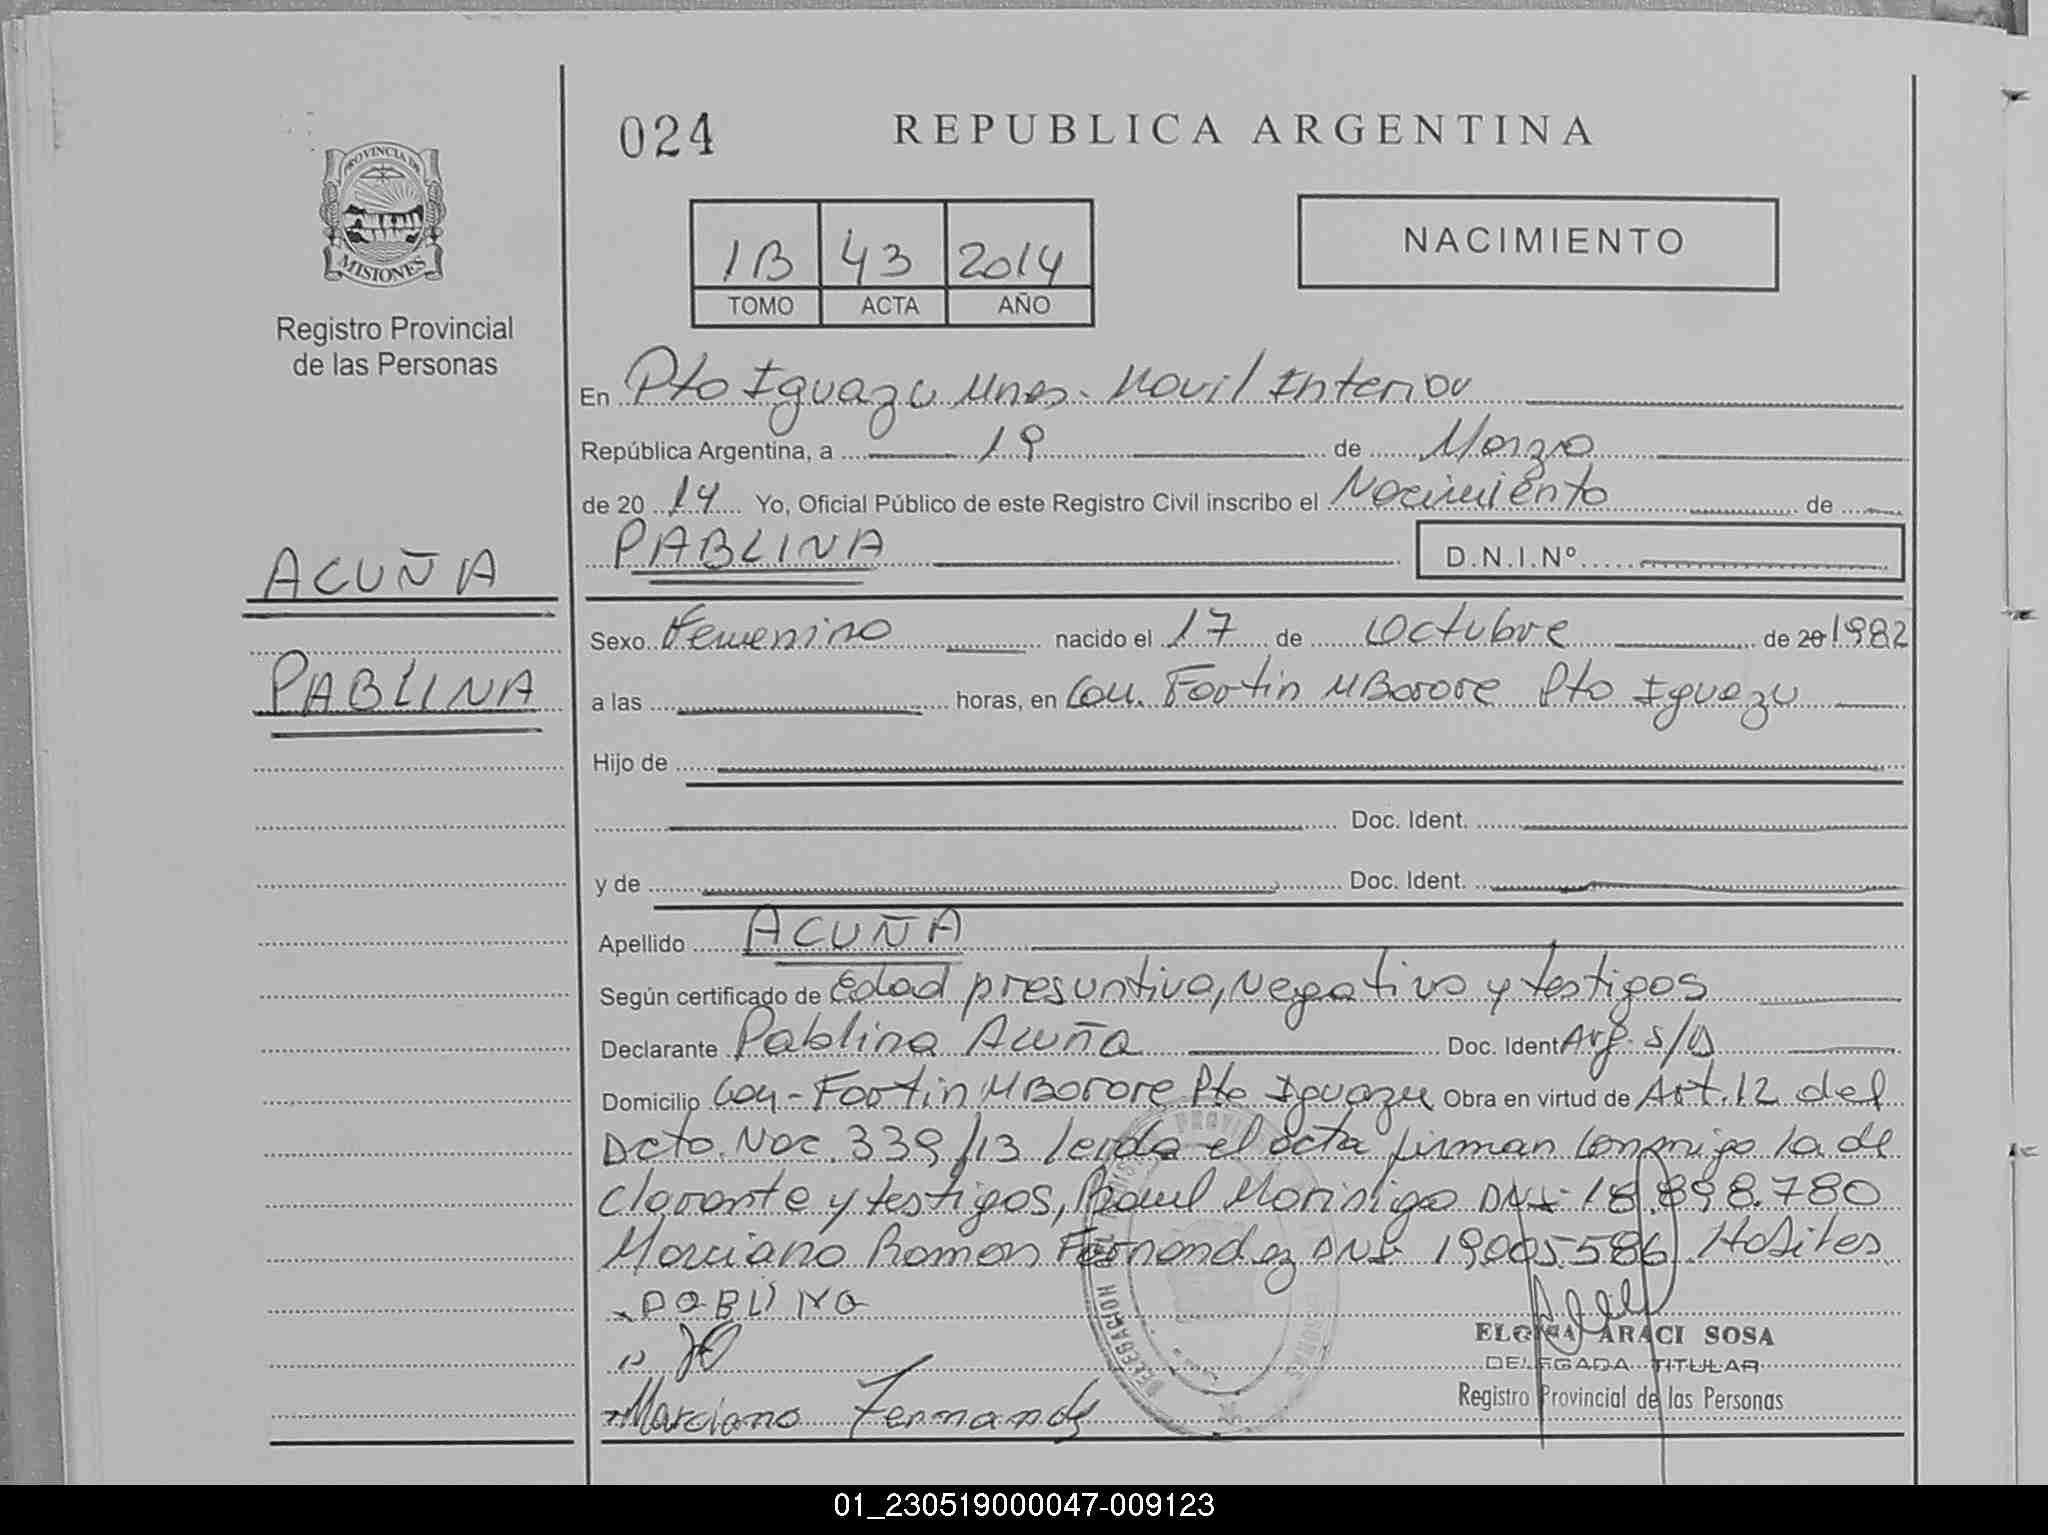 024
REPUBLICA ARGENTINA
PROVINCIA DE
MISIONES
Registro Provincial
de las Personas
1B 43 2014
TOMO ACTA AÑO
NACIMIENTO
En Pto Iguazu Mnes. Movil Interior
República Argentina, a 19 de Marzo
de 20 14 Yo, Oficial Público de este Registro Civil inscribo el Nacimiento de
PABLINA D.N.I.Nº
ACUÑA
PABLINA
Sexo Femenino nacido el 17 de Octubre de 20 1982
a las horas, en Com. Fortin MBorore Pto Iguazu
Hijo de
Doc. Ident.
y de Doc. Ident.
Apellido ACUÑA
Según certificado de Edad presuntiva, Negativo y testigos
Declarante Pablina Acuña Doc. Ident Arg. S/D
Domicilio Com - Fortin MBorore Pto Iguazu Obra en virtud de Art. 12 del
Dcto. Nac. 339/13 leida el acta firman conmigo la de
clarante y testigos, Raul Morinigo DNI 18.898.780
Marciano Ramon Fernandez DNI 19005.586
PABLINA
Marciano Fernandez
DELEGACION
ELOISA ARACI SOSA
DELEGADA TITULAR
Registro Provincial de las Personas
01_230519000047-009123